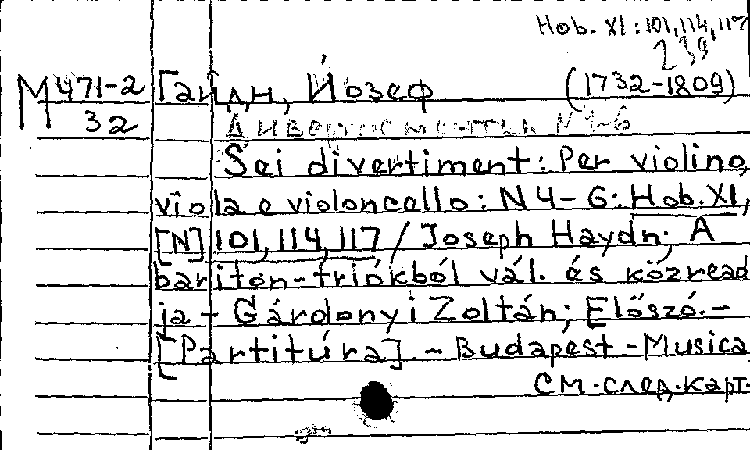 Hob. XI:101,114,117
239
М 471-2 Гайдн, Йозеф (1732-1809)
32 Дивертисменты. N 4-6
Sei divertiment: Per violino,
viola e violoncello: N 4-6: Hob. XI,
[N] 101,114,117 / Joseph Haydn; A
bariton-triókból vál. és közread
ja - Gárdonyi Zoltán; Előszó. -
[Partitúra]. - Budapest - Musica
См. след. карт.